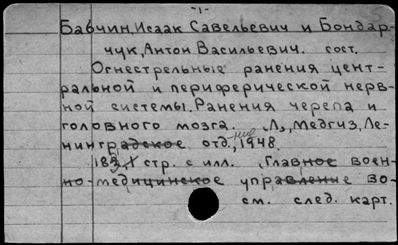 -1-
Бабчин, Исаак Савельевич и Бондар-
чук, Антон Васильевич. сост.
Огнестрельные ранения цент-
ральной и периферической нерв-
ной системы. Ранения черепа и
головного мозга. Л., Медгиз, Ле-
нинградское отд., 1948.
стр. с илл. (Главное воен-
но-медицинское управление Во-
см. след. карт.